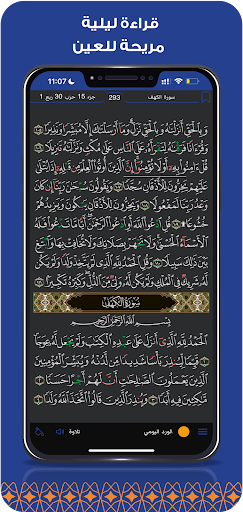 قراءة ليلية
مريحة للعين
11:07
جزء 15 حزب 30 ربع 1
293
سورة الكهف
وَبِٱلْحَقِّ أَنزَلْنَٰهُ وَبِٱلْحَقِّ نَزَلَ وَمَآ أَرْسَلْنَٰكَ إِلَّا مُبَشِّرًا وَنَذِيرًا ١٠٥
وَقُرْءَانًا فَرَقْنَٰهُ لِتَقْرَأَهُۥ عَلَى ٱلنَّاسِ عَلَىٰ مُكْثٍ وَنَزَّلْنَٰهُ تَنزِيلًا ١٠٦
قُلْ ءَامِنُوا۟ بِهِۦٓ أَوْ لَا تُؤْمِنُوٓا۟ إِنَّ ٱلَّذِينَ أُوتُوا۟ ٱلْعِلْمَ مِن قَبْلِهِۦٓ إِذَا يُتْلَىٰ
عَلَيْهِمْ يَخِرُّونَ لِلْأَذْقَانِ سُجَّدًا ١٠٧ وَيَقُولُونَ سُبْحَٰنَ رَبِّنَآ إِن كَانَ
وَعْدُ رَبِّنَا لَمَفْعُولًا ١٠٨ وَيَخِرُّونَ لِلْأَذْقَانِ يَبْكُونَ وَيَزِيدُهُمْ
خُشُوعًا ١٠٩ قُلِ ٱدْعُوا۟ ٱللَّهَ أَوِ ٱدْعُوا۟ ٱلرَّحْمَٰنَ أَيًّا مَّا تَدْعُوا۟ فَلَهُ
ٱلْأَسْمَآءُ ٱلْحُسْنَىٰ وَلَا تَجْهَرْ بِصَلَاتِكَ وَلَا تُخَافِتْ بِهَا وَٱبْتَغِ
بَيْنَ ذَٰلِكَ سَبِيلًا ١١٠ وَقُلِ ٱلْحَمْدُ لِلَّهِ ٱلَّذِى لَمْ يَتَّخِذْ وَلَدًا وَلَمْ يَكُن لَّهُۥ
شَرِيكٌ فِى ٱلْمُلْكِ وَلَمْ يَكُن لَّهُۥ وَلِىٌّ مِّنَ ٱلذُّلِّ وَكَبِّرْهُ تَكْبِيرًۢا ١١١
سُورَةُ الكَهْفِ
بِسْمِ ٱللَّهِ ٱلرَّحْمَٰنِ ٱلرَّحِيمِ
ٱلْحَمْدُ لِلَّهِ ٱلَّذِىٓ أَنزَلَ عَلَىٰ عَبْدِهِ ٱلْكِتَٰبَ وَلَمْ يَجْعَل لَّهُۥ عِوَجَا ١
قَيِّمًا لِّيُنذِرَ بَأْسًا شَدِيدًا مِّن لَّدُنْهُ وَيُبَشِّرَ ٱلْمُؤْمِنِينَ
ٱلَّذِينَ يَعْمَلُونَ ٱلصَّٰلِحَٰتِ أَنَّ لَهُمْ أَجْرًا حَسَنًا ٢
مَّٰكِثِينَ فِيهِ أَبَدًا ٣ وَيُنذِرَ ٱلَّذِينَ قَالُوا۟ ٱتَّخَذَ ٱللَّهُ وَلَدًا ٤
الورد اليومي
تلاوة